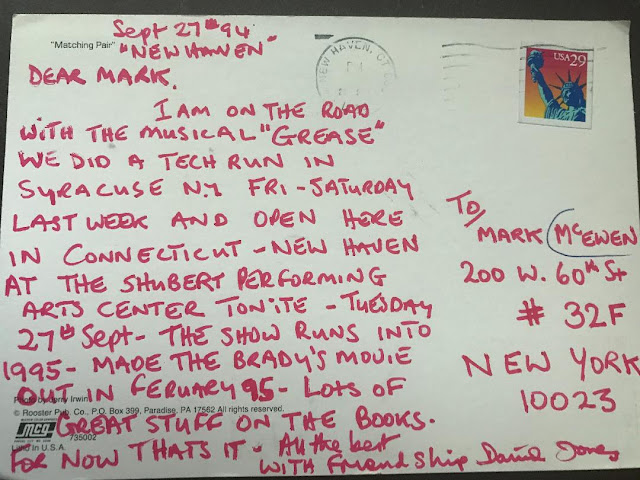 Sept 27th 94
"Matching Pair"
"NEW HAVEN"
DEAR MARK.
I AM ON THE ROAD
WITH THE MUSICAL "GREASE"
WE DID A TECH RUN IN
SYRACUSE N.Y. FRI-SATURDAY
LAST WEEK AND OPEN HERE
IN CONNECTICUT - NEW HAVEN
AT THE SHUBERT PERFORMING
ARTS CENTER TONITE - TUESDAY
27th Sept - THE SHOW RUNS INTO
1995 - MADE THE BRADY'S MOVIE
OUT IN FERUARY 95 - LOTS OF
Photo by Jerry Irwin
© Rooster Pub. Co., P.O. Box 399, Paradise, PA 17562 All rights reserved.
GREAT STUFF ON THE BOOKS.
mcg
735002
Litho in U.S.A.
FOR NOW THATS IT - All the best
WITH Friendship David Jones
NEW HAVEN, CT
USA 29
TO/
MARK McEWEN
200 W. 60th St
# 32F
NEW YORK
10023